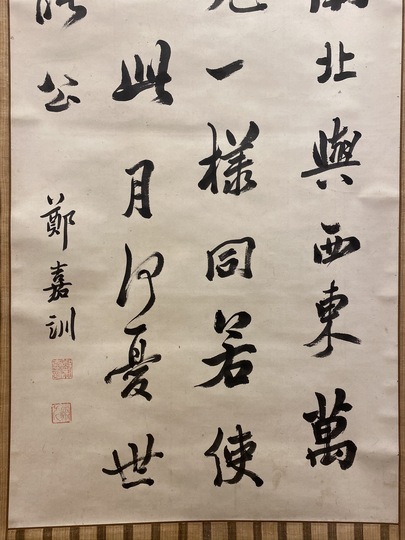 南北與西東萬
一樣同若使
此月何憂世
公
鄭嘉訓